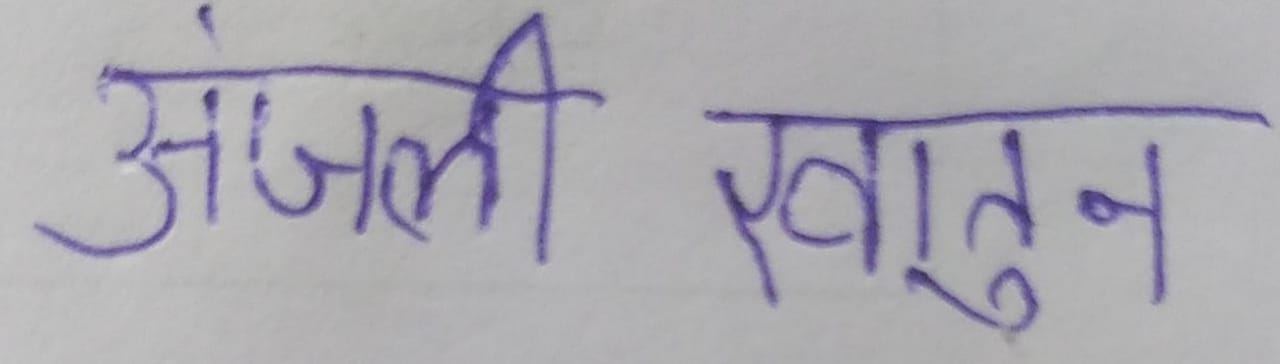 अंजली खातुन